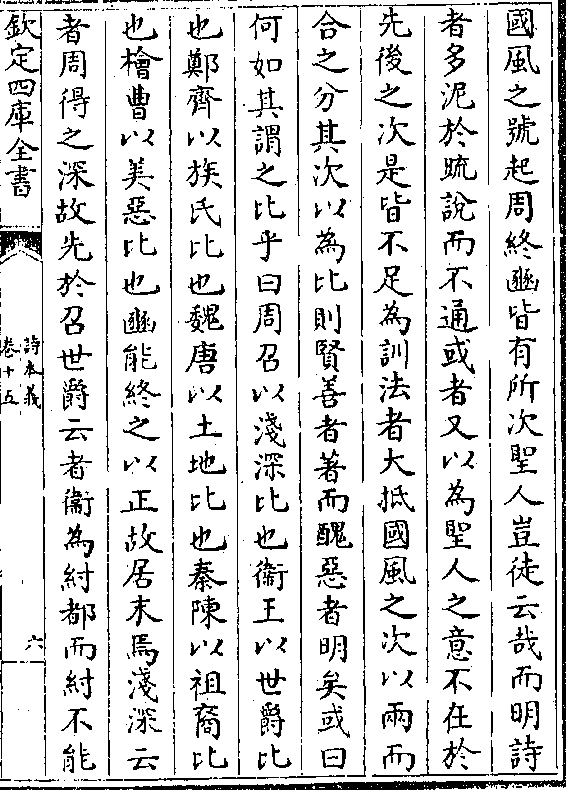 國風之號起周終豳皆有所次聖人豈徒云哉而明詩
者多泥於䟽說而不通或者又以為聖人之意不在於
先後之次是皆不足為訓法者大抵國風之次以兩而
合之分其次以為比則賢善者著而醜惡者明矣或曰
何如其謂之比乎曰周召以淺深比也衞王以世爵比
也鄭齊以族氏比也魏唐以土地比也秦陳以祖裔比
也檜曹以美惡比也豳能終之以正故居末焉淺深云
者周得之深故先於召世爵云者衞為紂都而紂不能
欽定四庫全書
詩本義
卷十五
六